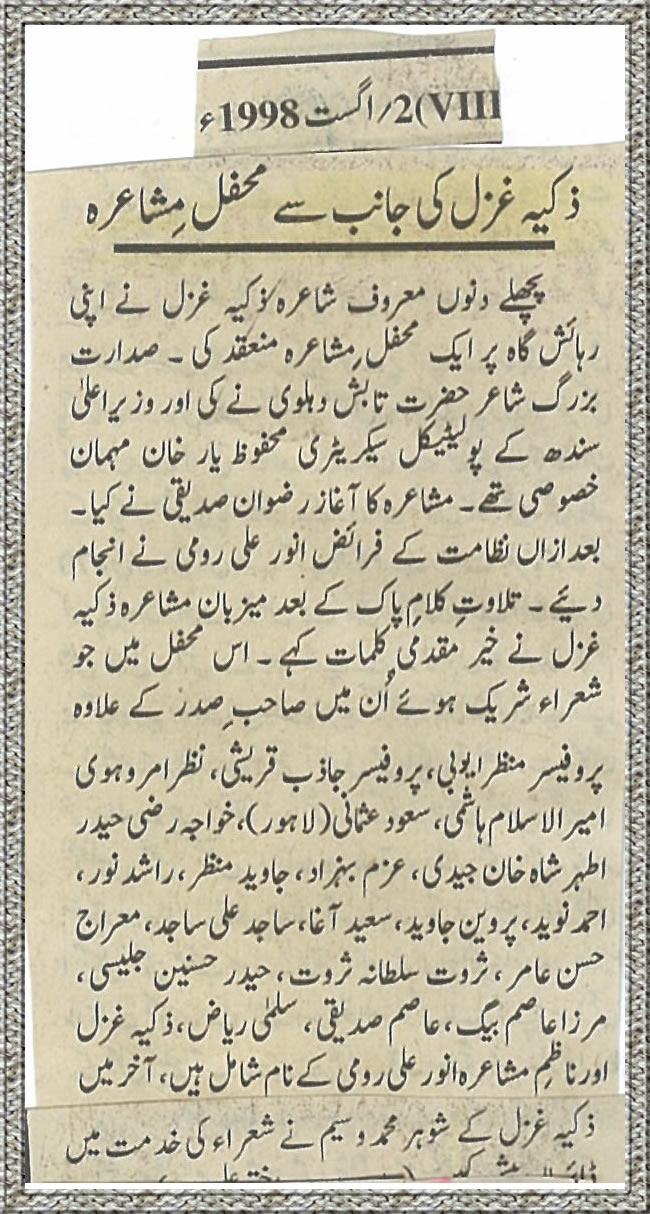 VIII)2؍اگست 1998ء
ذکیہ غزل کی جانب سے محفلِ مشاعرہ
پچھلے دنوں معروف شاعرہ ذکیہ غزل نے اپنی
رہائش گاہ پر ایک محفلِ مشاعرہ منعقد کی ۔ صدارت
بزرگ شاعر حضرت تابش دہلوی نے کی اور وزیراعلیٰ
سندھ کے پولیٹیکل سیکریٹری محفوظ یار خان مہمان
خصوصی تھے۔ مشاعرہ کا آغاز رضوان صدیقی نے کیا۔
بعدازاں نظامت کے فرائض انور علی رومی نے انجام
دیئے ۔ تلاوتِ کلامِ پاک کے بعد میزبان مشاعرہ ذکیہ
غزل نے خیر مقدمی کلمات کہے ۔ اس محفل میں جو
شعراء شریک ہوئے اُن میں صاحبِ صدر کے علاوہ
پروفیسر منظر ایوبی، پروفیسر جاذب قریشی، نظر امروہوی
امیر الاسلام ہاشمی، سعود عثمانی (لاہور)، خواجہ رضی حیدر
اطہر شاہ خان جیدی، عزم بہزاد، جاوید منظر، راشد نور،
احمد نوید، پروین جاوید، سعید آغا، ساجد علی ساجد، معراج
حسن عامر، ثروت سلطانہ ثروت، حیدر حسنین جلیسی،
مرزا عاصم بیگ، عاصم صدیقی، سلمٰی ریاض، ذکیہ غزل
اور ناظمِ مشاعرہ انور علی رومی کے نام شامل ہیں، آخر میں
ذکیہ غزل کے شوہر محمد وسیم نے شعراء کی خدمت میں